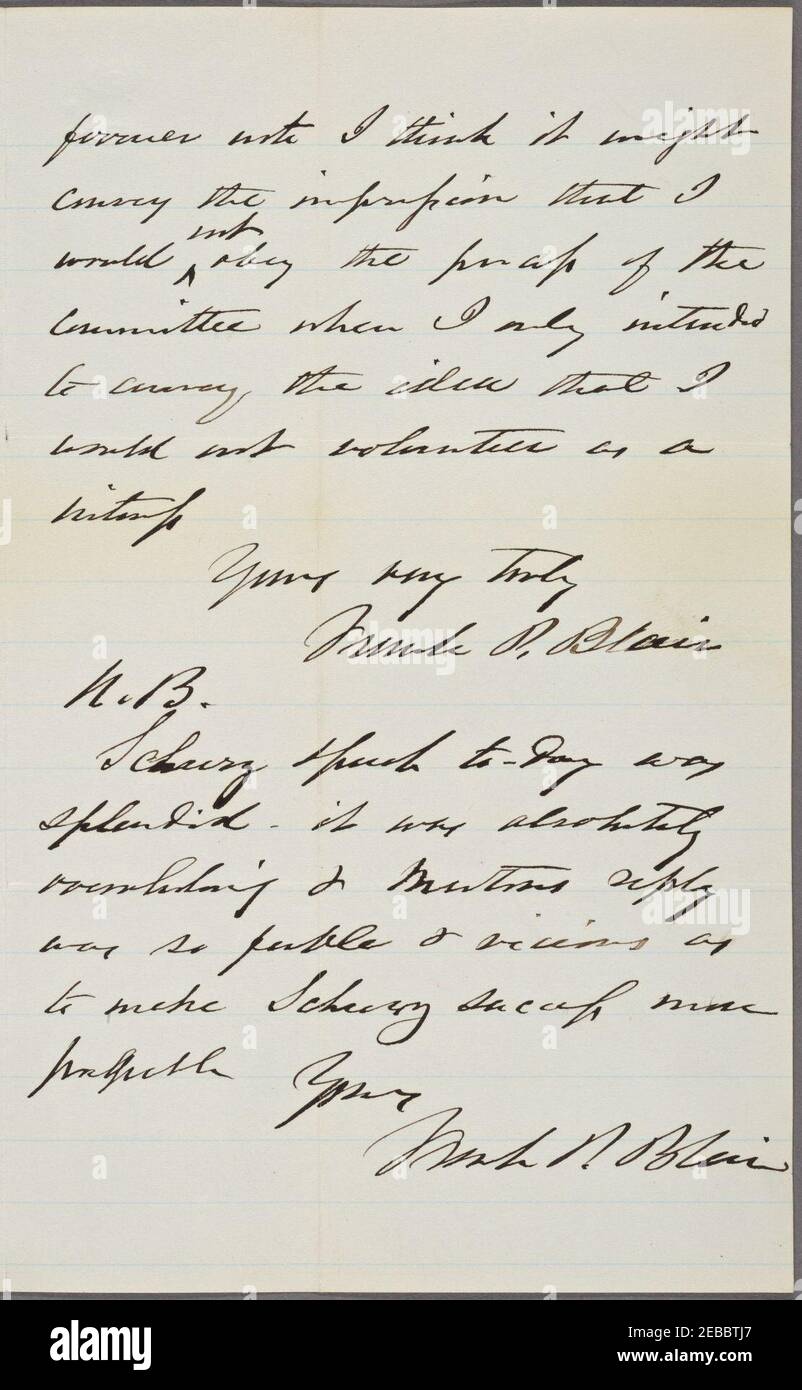 former note I think it might
convey the impression that I
would not obey the process of the
committee when I only intended
to convey, the idea that I
would not volunteer as a
witness
Yours very truly
Frank P. Blair
N. B.
Schurz speech to-day was
splendid - it was absolutely
overwhelming & Mortons reply
was so feeble & vicious as
to make Schurz success more
palpable
Yours
Frank P. Blair
alamy
Image ID: 2EBBTJ7
www.alamy.com